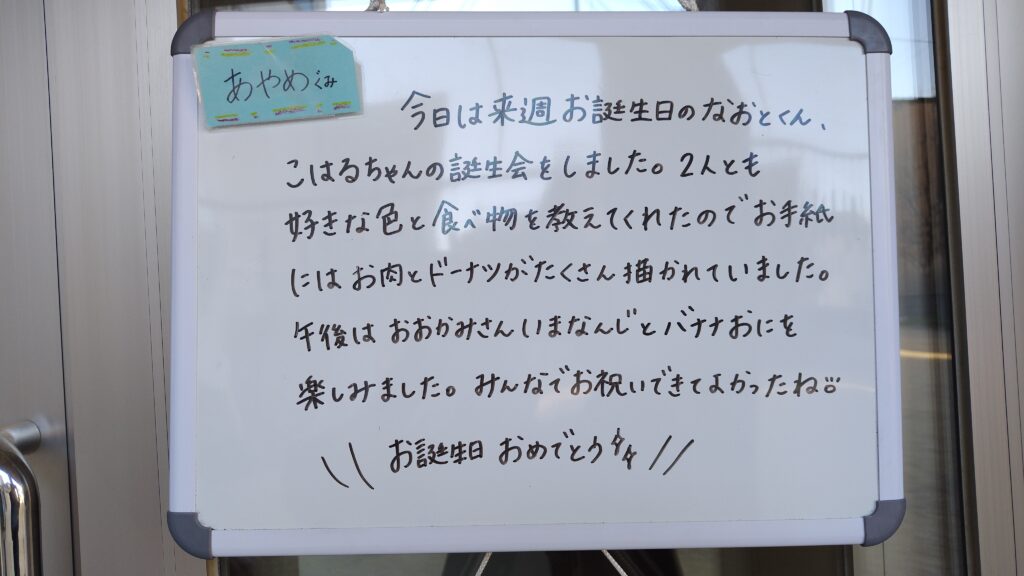 あやめぐみ
今日は来週お誕生日のなおとくん、
こはるちゃんの誕生会をしました。2人とも
好きな色と食べ物を教えてくれたのでお手紙
にはお肉とドーナツがたくさん描かれていました。
午後はおおかみさんいまなんじとバナナおにを
楽しみました。みんなでお祝いできてよかったね
お誕生日おめでとう